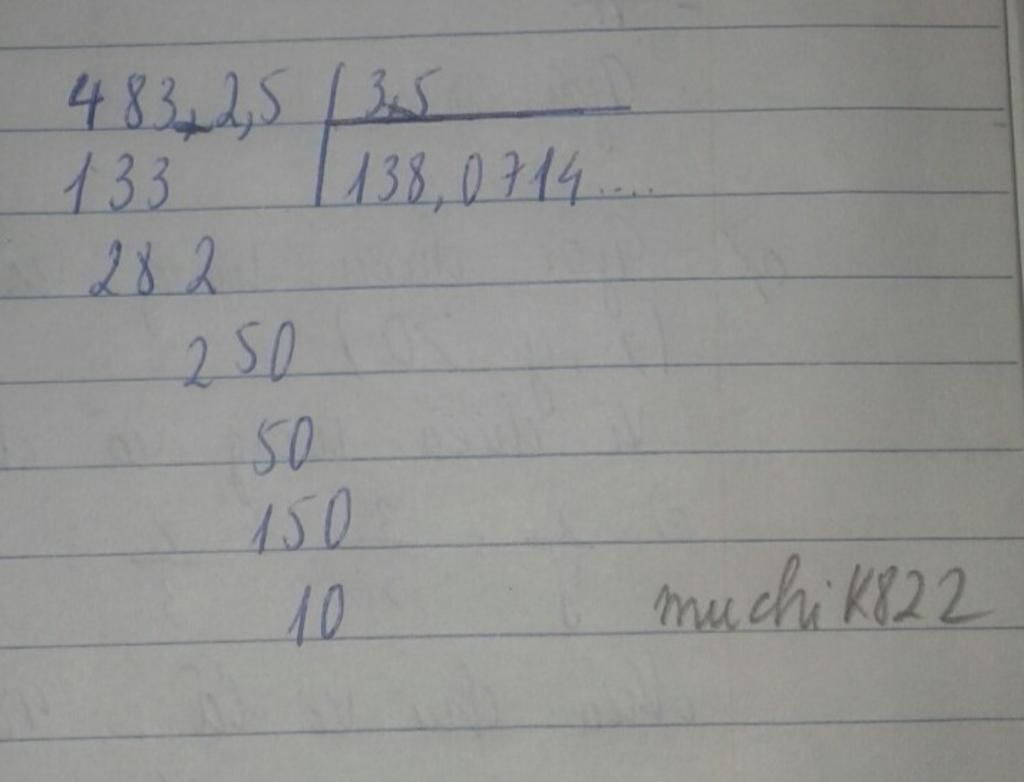 483,2,5 3,5
133 138,0714....
282
250
50
150
10 muchiK822